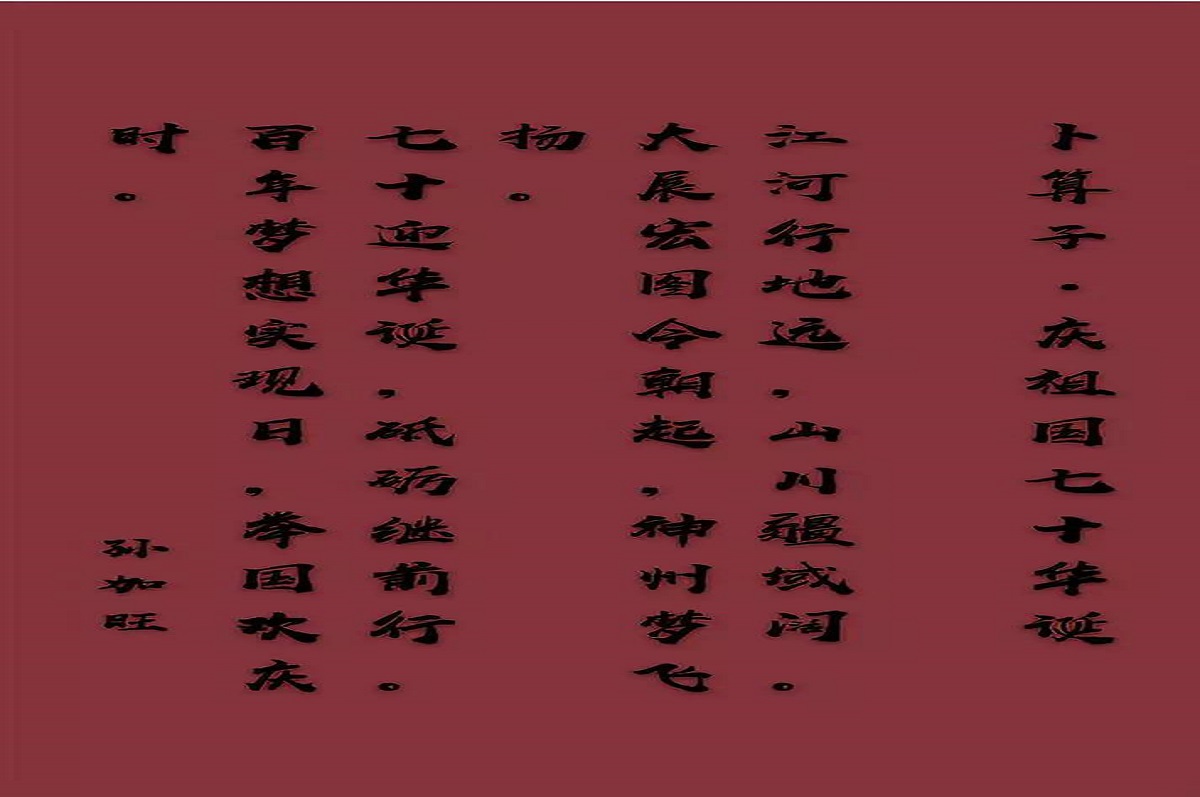 卜算子·庆祖国七十华诞
江河行地远，山川疆域阔。
大展宏图今朝起，神州梦飞
扬。
七十迎华诞，砥砺继前行。
百年梦想实现日，举国欢庆
时。
孙如旺